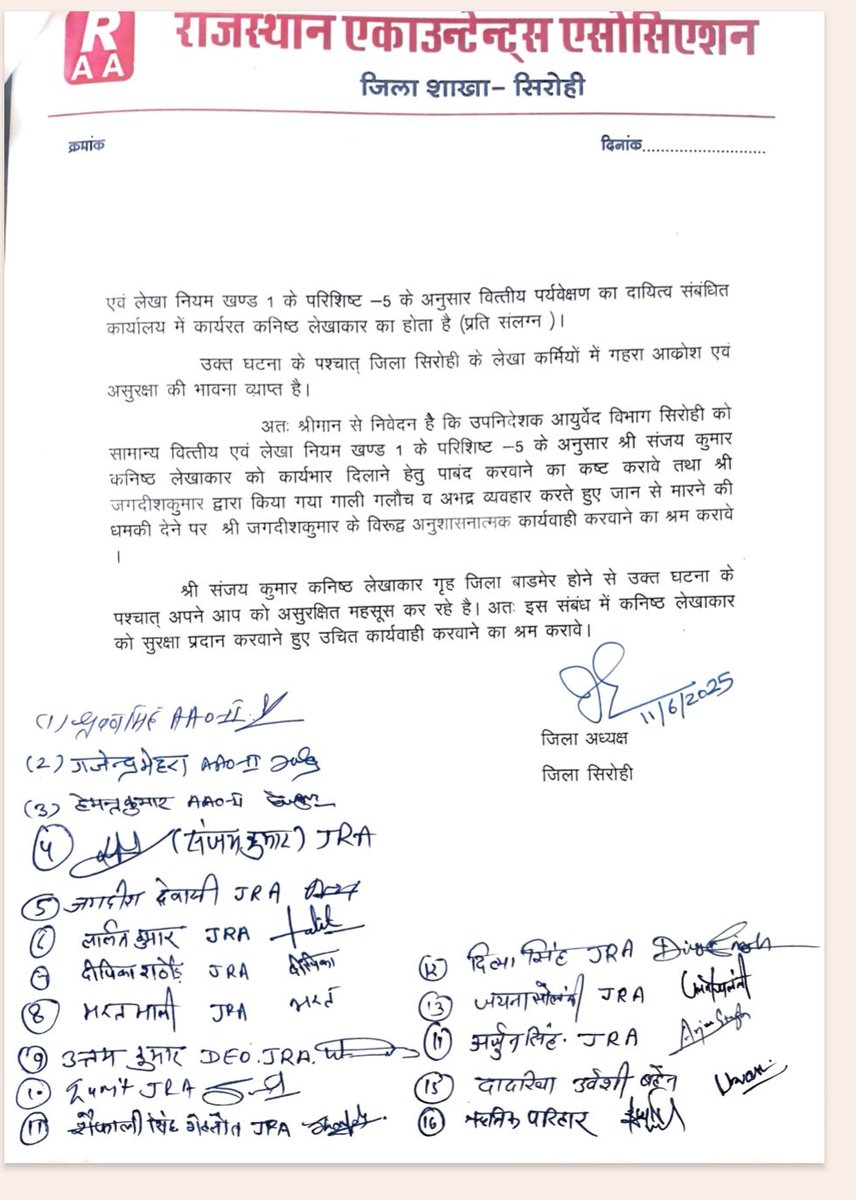 R
AA
राजस्थान एकाउन्टेन्ट्स एसोसिएशन
जिला शाखा– सिरोही
क्रमांक
दिनांक............................
एवं लेखा नियम खण्ड 1 के परिशिष्ट –5 के अनुसार वित्तीय पर्यवेक्षण का दायित्व संबंधित
कार्यालय में कार्यरत कनिष्ठ लेखाकार का होता है (प्रति संलग्न )।
उक्त घटना के पश्चात् जिला सिरोही के लेखा कर्मियों में गहरा आक्रोश एवं
असुरक्षा की भावना व्याप्त है।
अतः श्रीमान से निवेदन है कि उपनिदेशक आयुर्वेद विभाग सिरोही को
सामान्य वित्तीय एवं लेखा नियम खण्ड 1 के परिशिष्ट –5 के अनुसार श्री संजय कुमार
कनिष्ठ लेखाकार को कार्यभार दिलाने हेतु पाबंद करवाने का कष्ट करावे तथा श्री
जगदीशकुमार द्वारा किया गया गाली गलौच व अभद्र व्यवहार करते हुए जान से मारने की
धमकी देने पर श्री जगदीशकुमार के विरूद्व अनुशासनात्मक कार्यवाही करवाने का श्रम करावे
।
श्री संजय कुमार कनिष्ठ लेखाकार गृह जिला बाडमेर होने से उक्त घटना के
पश्चात् अपने आप को असुरक्षित महसूस कर रहे है। अतः इस संबंध में कनिष्ठ लेखाकार
को सुरक्षा प्रदान करवाने हुए उचित कार्यवाही करवाने का श्रम करावे।
11/6/2025
जिला अध्यक्ष
जिला सिरोही
(1) AAO-II
(2) गजेन्द्र मेहरा AAO-II
(3) हेमन्त कुमार AAO-II
(4) (संजय कुमार) JRA
(5) जगदीश देवासी JRA
(6) ललित कुमार JRA Lalit
(7) दीपिका राठौड़ JRA दीपिका
(8) भरत माली JRA भरत
(9) उत्तम कुमार DEO. JRA.
(10) Sumit JRA
(11) सिंह गेहलोत JRA
(12) सिंह JRA
(13) जयना सोलंकी JRA
(14) अर्जुन सिंह. JRA Arjun Singh
(15) उर्वशी बहेन Urvashi
(16) परिहार